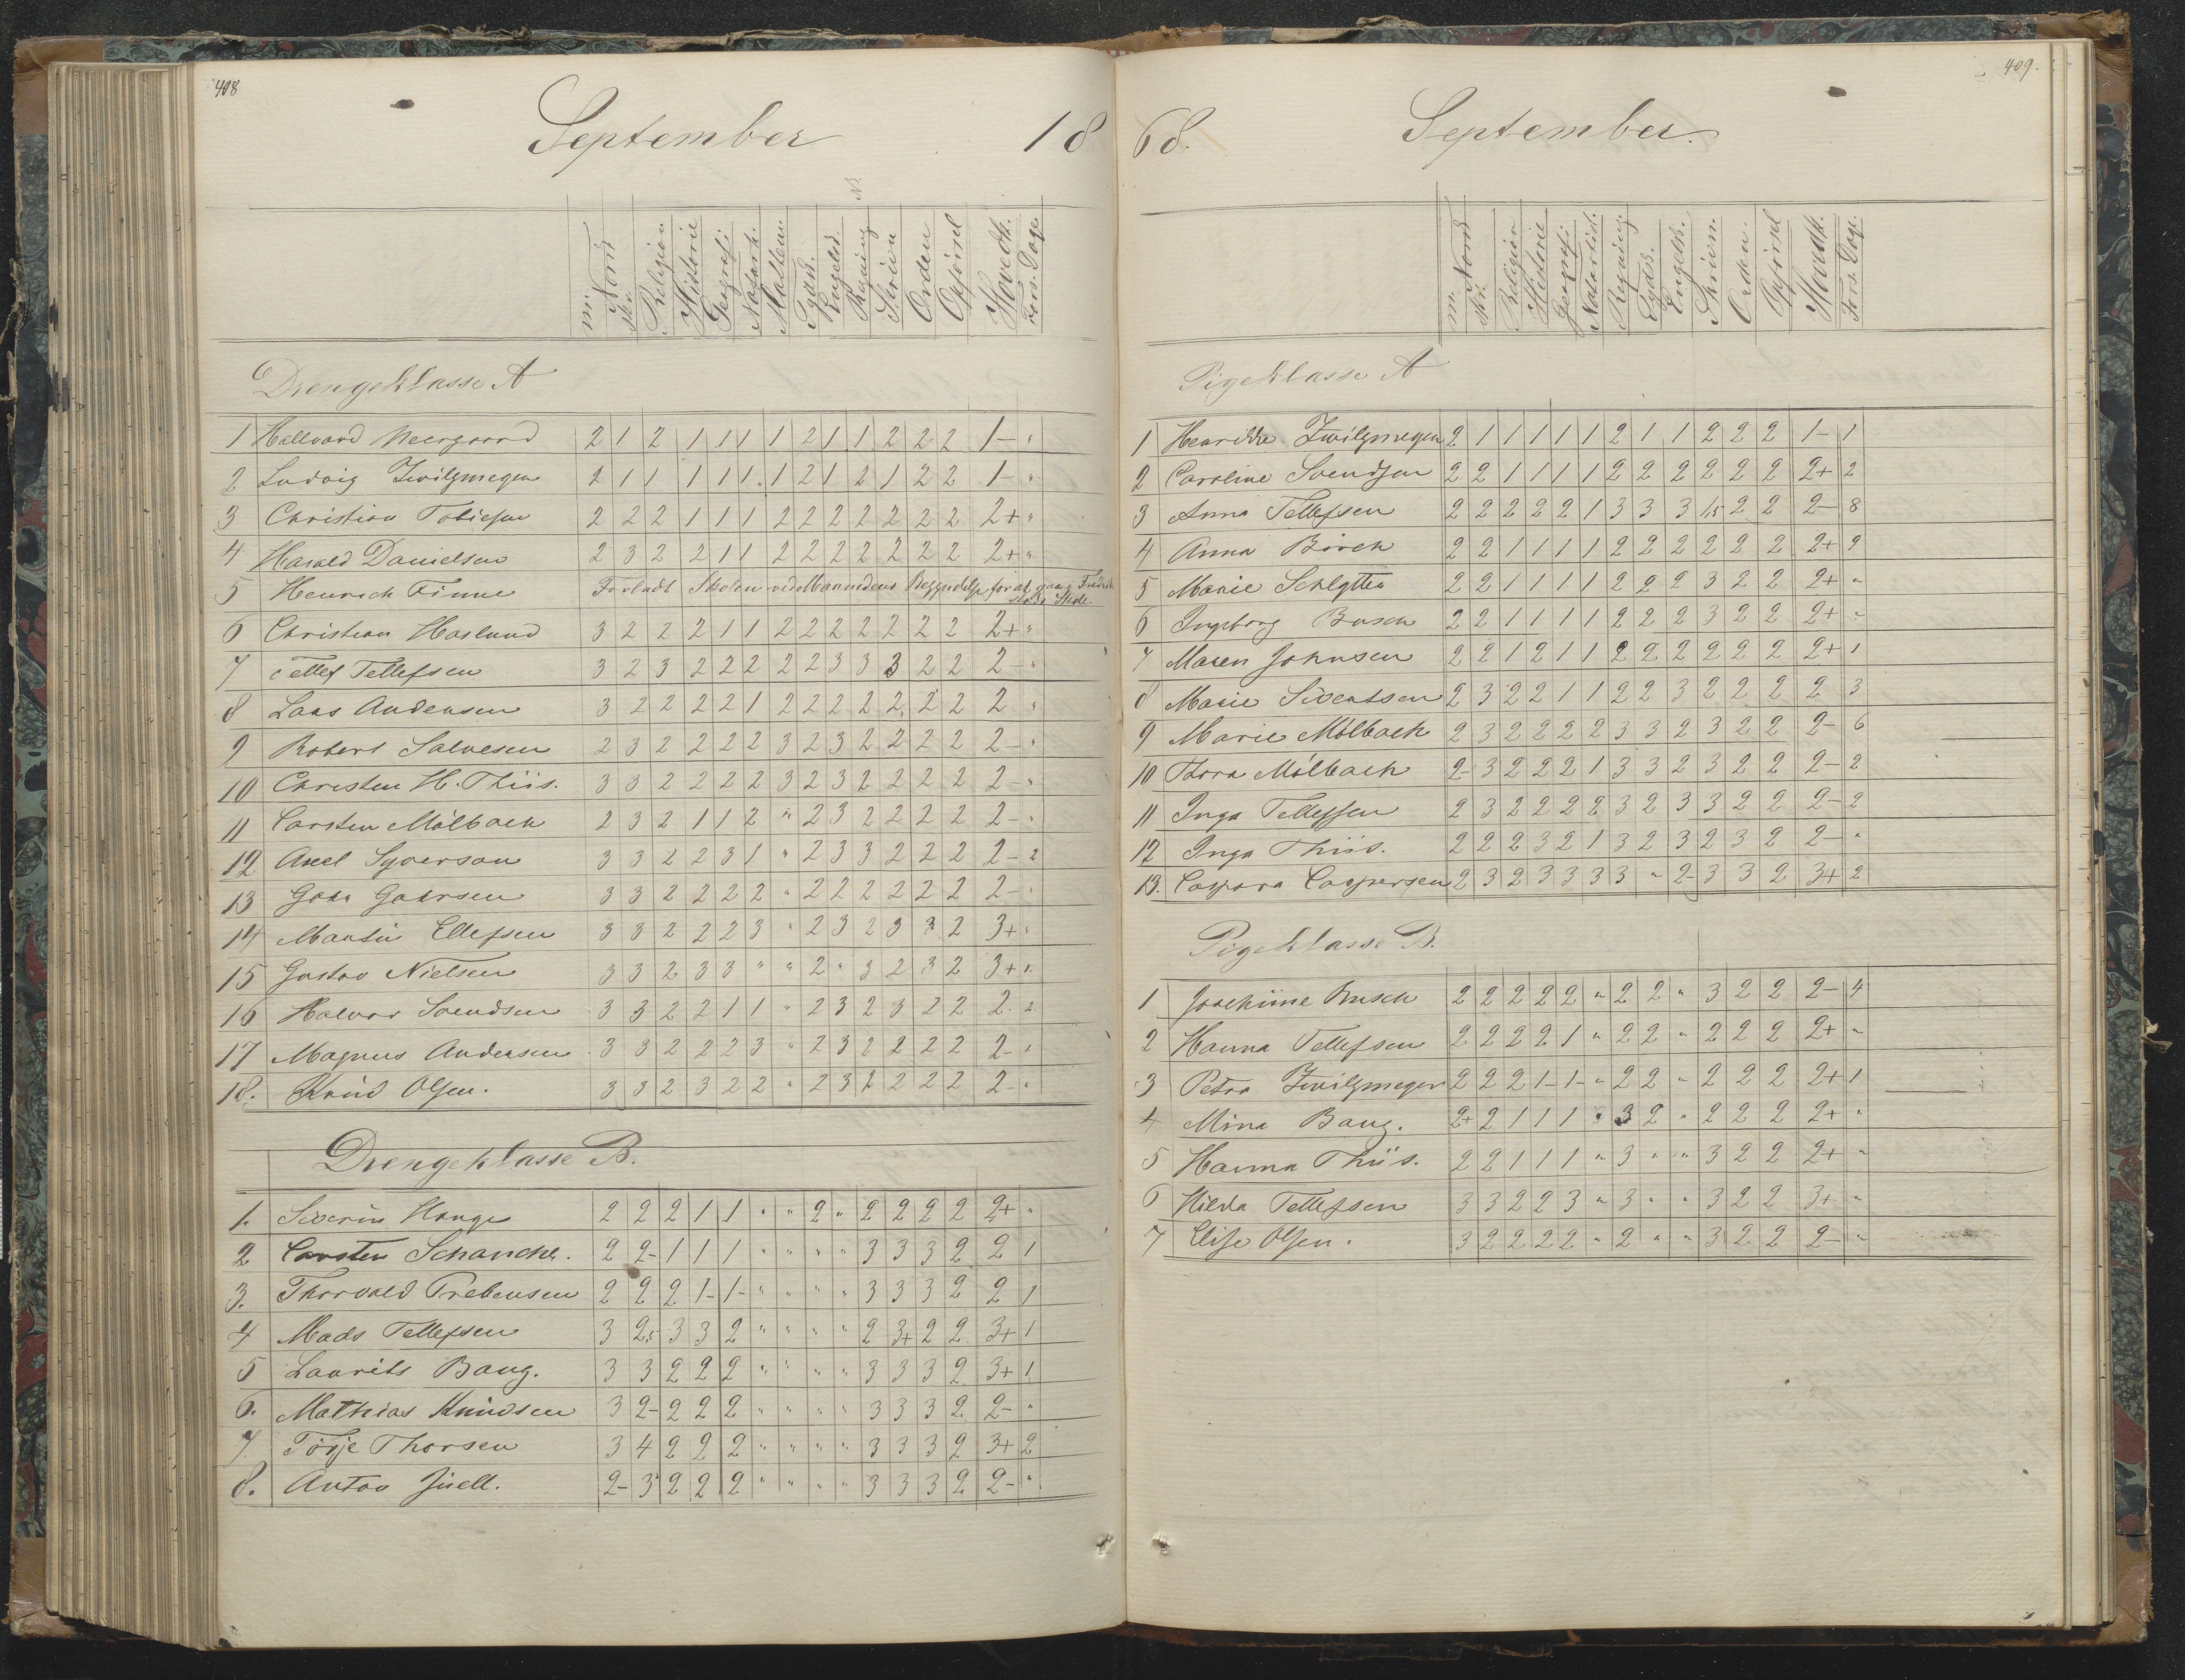 408
September 18
m. Norsk skr. Religion Historie Geografi Naturh. Mathem. Tydsk. Engelsk. Regning Skrivn Orden Opførsel Hovedk. Fors. Dage
Drengeklasse A
1 Hallvard Neergaard 2 1 2 1 1 1 1 2 1 1 2 2 2 1- "
2 Ludvig Zwilgmeyer 2 1 1 1 1 1 1 2 1 2 1 2 2 1- "
3 Christian Tobiesen 2 2 2 1 1 1 2 2 2 2 2 2 2 2+ "
4 Harald Danielsen 2 3 2 2 1 1 2 2 2 2 2 2 2 2+ "
5 Henrich Finne Forladt Skolen ved Maanedens Begyndelse for at gaa i Fredrik
Skole.
6 Christian Haslund 3 2 2 2 1 1 2 2 2 2 2 2 2 2+ "
7 Tellef Tellefsen 3 2 3 2 2 2 2 2 3 3 3 2 2 2- "
8 Lars Andersen 3 2 2 2 2 1 2 2 2 2 2 2 2 2 "
9 Robert Salvesen 2 3 2 2 2 2 3 2 3 2 2 2 2 2- "
10 Christen H. Thiis. 3 3 2 2 2 2 3 2 3 2 2 2 2 2- "
11 Carsten Mølbach 2 3 2 1 1 2 " 2 3 2 2 2 2 2- "
12 Axel Syverson 3 3 2 2 3 1 " 2 3 3 2 2 2 2- 2
13 John Gahrsen 3 3 2 2 2 2 " 2 2 2 2 2 2 2- "
14 Martin Ellefsen 3 3 2 2 2 3 " 2 3 2 3 3 2 3+ "
15 Gustav Nielsen 3 3 2 3 3 " " 2 " 3 2 3 2 3+ 1.
16 Halvor Svendsen 3 3 2 2 1 1 " 2 3 2 3 2 2 2- 2
17 Magnus Andersen 3 3 2 2 2 3 " 2 3 2 2 2 2 2- "
18. Knud Olsen. 3 3 2 3 2 2 " 2 3 2 2 2 2 2- "
Drengeklasse B.
1. Siverin Hauge 2 2 2 1 1 " " 2 " 2 2 2 2 2+ "
2 Carsten Schanche. 2 2- 1 1 1 " " " " 3 3 3 2 2 1
3. Thorvald Prebensen 2 2 2 1- 1- " " " " 3 3 3 2 2 1
4 Mads Tellefsen 3 2,5 3 3 2 " " " " 2 3+ 2 2 3+ 1
5 Laurits Bang. 3 3 2 2 2 " " " " 3 3 3 2 3+ 1
6. Mathias Knudsen 3 2- 2 2 2 " " " " 3 3 3 2 2- "
7 Törje Thorsen 3 4 2 2 2 " " " " 3 3 3 2 3+ 2
8. Anton Juell. 2- 3 2 2 2 " " " " 3 3 3 2 2- "
409.
68. September.
m. Norsk skr. Religion Historie Geografi Naturhist. Regning Tydsk. Engelsk. Skrivn. Orden. Opførsel Hovedk. Fors. Dage.
Pigeklasse A
1 Henrikke Zwilgmeyer 2 1 1 1 1 1 2 1 1 2 2 2 1- 1
2 Caroline Svendsen 2 2 1 1 1 1 2 2 2 2 2 2 2+ 2
3 Anna Tellefsen 2 2 2 2 2 1 3 3 3 1,5 2 2 2- 8
4 Anna Börch 2 2 1 1 1 1 2 2 2 2 2 2 2+ 9
5 Marie Schlytter 2 2 1 1 1 1 2 2 2 3 2 2 2+ "
6 Ingeborg Busch 2 2 1 1 1 1 2 2 2 3 2 2 2+ "
7 Maren Johnsen 2 2 1 2 1 1 2 2 2 2 2 2 2+ 1
8 Marie Sivertsen 2 3 2 2 1 1 2 2 3 2 2 2 2 3
9 Marie Mölbach 2 3 2 2 2 2 3 3 2 3 2 2 2- 6
10 Thora Mölbach 2- 3 2 2 2 1 3 3 2 3 2 2 2- 2
11 Inga Tellefsen 2 3 2 2 2 2 3 2 3 3 2 2 2- 2
12 Inga Thiis. 2 2 2 3 2 1 3 2 3 2 3 2 2- "
13. Caspara Caspersen 2 3 2 3 3 3 3 " 2- 3 3 2 3+ 2
Pigeklasse B.
1 Joachime Busch 2 2 2 2 2 " 2 2 " 3 2 2 2- 4
2 Hanna Tellefsen 2 2 2 2 1 " 2 2 " 2 2 2 2+ "
3 Petra Zwilgmeyer 2 2 2 1- 1- " 2 2 " 2 2 2 2+ 1
4 Mina Bang. 2+ 2 1 1 1 " 3 2 " 2 2 2 2+ "
5 Hanna Thiis. 2 2 1 1 1 " 3 " " 3 2 2 2+ "
6 Hilda Tellefsen 3 3 2 2 3 " 3 " " 3 2 2 3+ "
7 Elise Olsen. 3 2 2 2 2 " 2 " " 3 2 2 2- "